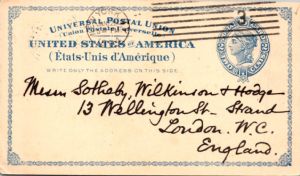 3
UNIVERSAL POSTAL UNION
(Union Postale Universelle)
UNITED STATES OF AMERICA
(États-Unis d'Amérique)
WRITE ONLY THE ADDRESS ON THIS SIDE.
Messrs Sotheby, Wilkinson & Hodge
13 Wellington St. Strand
London. W.C.
England.